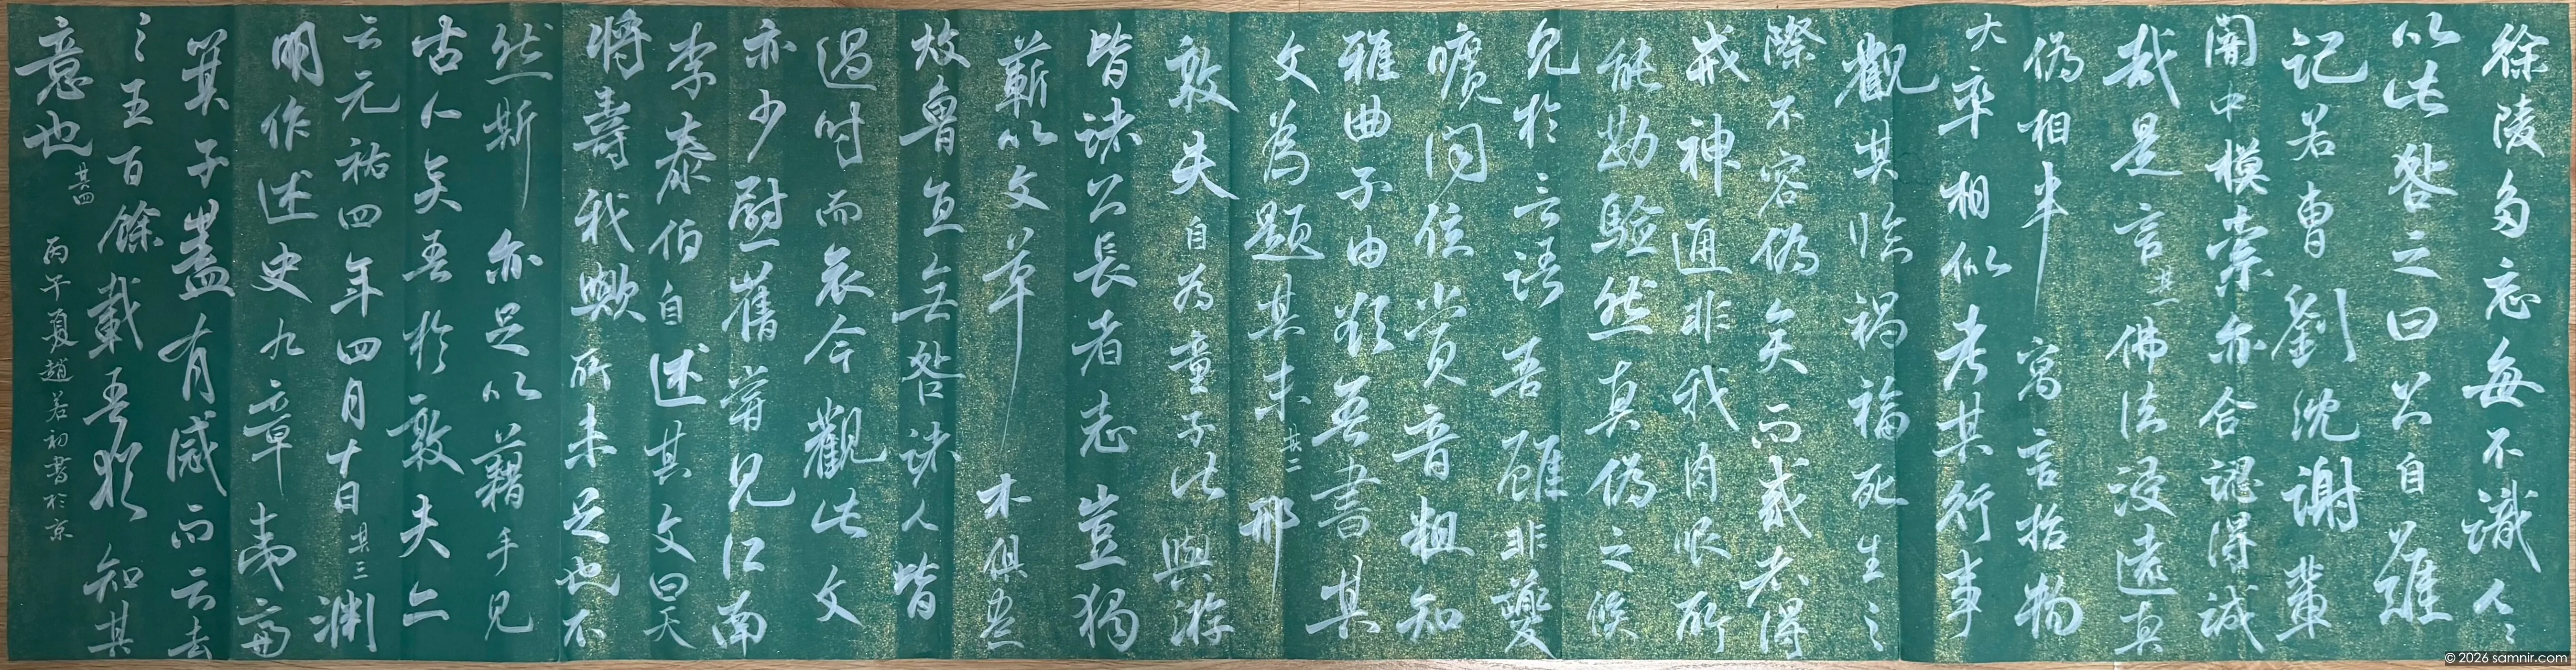 徐陵多忘每不識人人
以此咎之曰公自難
記若曹劉沈謝輩
闇中模索亦合認得誠
哉是言 其一 佛法浸遠真
偽相半 寓言指物
大率相似考其行事
觀其臨禍福死生之
際不容偽矣而或者得
戒神通非我肉眼所
能勘驗然真偽之候
見於言語吾雖非夔
曠聞弦賞音粗知
雅曲子由欲吾書其
文為題其末 其二 邢
敦夫自為童子汝與游
皆諸公長者志豈獨
蘄以文草 木俱盡
故魯直無咎諸人皆
過時而哀今觀此文
亦少慰舊嘗見江南
李泰伯自述其文曰天
將壽我歟所未足也不
然斯亦足以藉手見
古人矣吾於敦夫亦
云元祐四年四月十日 其三 淵
明作述史九章夷齊
箕子蓋有感而云去
之五百餘載吾猶知其
意也 其四 丙午夏趙若初書於京
© 2026 samnir.com